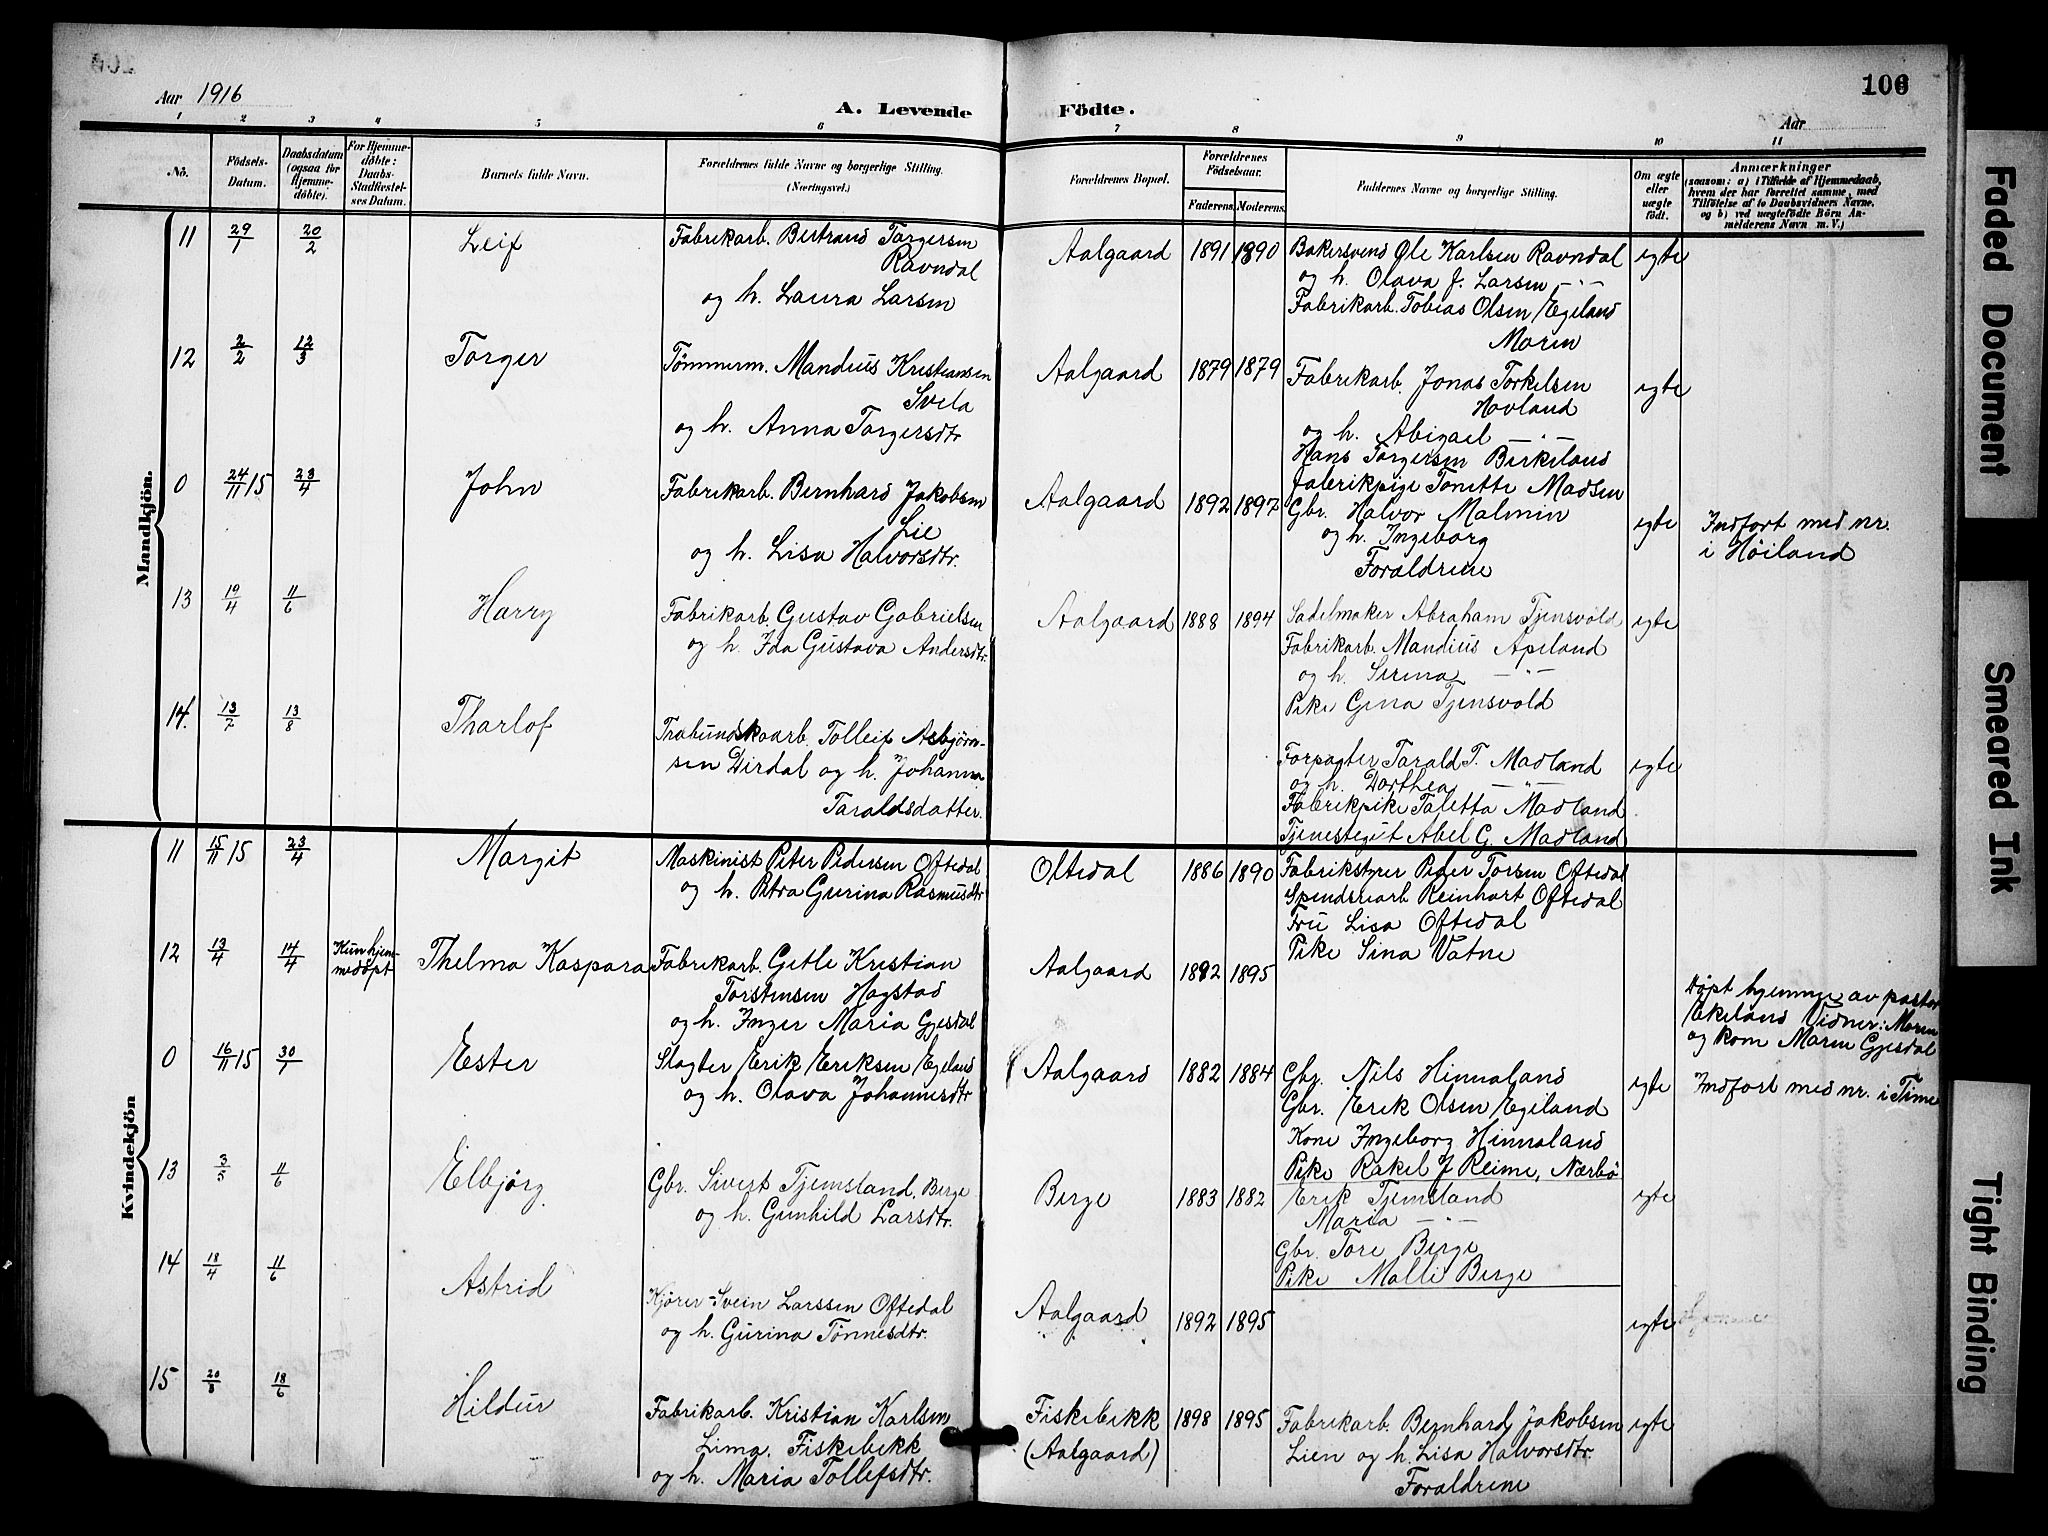 106
Aar 1916
A. Levende
Födte.
Aar
1 2 3 4 5 6 7 8 9 10 11
No.
Födsels-
Datum.
Daabsdatum
(ogsaa for
Hjemme-
döbte).
For Hjemme-
döbte:
Daabs-
Stadfæstel-
ses Datum.
Barnets fulde Navn.
Forældrenes fulde Navne og borgerlige Stilling.
(Næringsvei.)
Forældrenes Bopæl.
Forældrenes
Födselsaar.
Faderens. Moderens.
Faddernes Navne og borgerlige Stilling.
Om ægte
eller
uægte
födt.
Anmærkninger
(saasom: a) i Tilfælde af Hjemmedaab,
hvem der har forrettet samme, med
Tilföielse af to Daabsvidners Navne,
og b) ved uægtefödte Börn An-
melderens Navn m. V.)
Mandkjön.
11
29/1
20/2
Leif
Fabrikarb. Bertrand Torgersen
Ravndal
og h. Laura Larsen
Aalgaard
1891
1890
Bakersvend Ole Karlsen Ravndal
og h. Olava J. Larsen -"-
Fabrikarb. Tobias Olsen Egeland
Moren
egte
12
2/2
12/3
Torger
Tømmerm. Mandius Kristiansen
Svela
og h. Anna Torgersdtr
Aalgaard
1879
1879
Fabrikarb. Jonas Torkelsen
Hovland
og h. Abigael -"-
Hans Torgersen Birkeland
Fabrikpige Tonette Madsen
egte
0
24/11 15
23/4
John
Fabrikarb. Bernhard Jakobsen
Lie
og h. Lisa Halvorsdtr.
Aalgaard
1892
1897
Gbr. Halvor Malmin
og h. Ingeborg
Foraldrene
egte
Indført med nr.
i Høiland
13
19/4
11/6
Harry
Fabrikarb. Gustav Gabrielsen
og h. Ida Gustava Andersdtr.
Aalgaard
1888
1894
Sadelmaker Abraham Tjensvold
Fabrikarb. Mandius Apeland
og h. Serena -"-
Pike Gina Tjensvold
egte
14.
13/7
13/8
Tharlof
Tolleif Asbjørn-
sen Dirdal og h. Johanna
Taraldsdatter.
Forpagter Tarald T. Madland
og h. Dorthea -"-
Fabrikpike Taletta Madland
Tjenestegut Abel G. Madland
egte
Kvindekjön
11
15/11 15
23/4
Margit
Maskinist Peter Pedersen Oftedal
og h. Petra Gurina Rasmusdtr
Oltedal
1886
1890
Fabrikstyrer Peder Torsen Oftedal
Reinhart Oftedal
Fru Lisa Oftedal
Pike Sina Vatne
12
13/4
14/4
Kun hjem-
medøpt
Thelma Kaspara
Fabrikarb. Getle Kristian
Torstensen Hogstad
og h. Inger Maria Gjesdal
Aalgaard
1892
1895
Døpt hjemme av pastor
Ekeland Vidner: Moren
og kone Maren Gjesdal
0
16/11 15
30/1
Ester
Slagter Erik Eriksen Egeland
og h. Olava Johannesdtr
Aalgaard
1882
1884
Gbr. Nils Hinnaland
Gbr. Erik Olsen Egeland
Kone Ingeborg Hinnaland
Pike Rakel J Reime, Nærbø
egte
Indført med nr. i Time
13
3/5
11/6
Elbjørg
Gbr. Sivert Tjemsland, Berge
og h. Gunhild Larsdtr.
Berge
1883
1882
Erik Tjemsland
Maria -"-
Gbr. Tore Berge
Pike Malli Berge
egte
14
18/4
11/6
Astrid
Kjører Svein Larssen Oftedal
og h. Gurina Tønnesdtr.
Aalgaard
1892
1895
egte
15
20/3
18/6
Hildur
Fabrikarb. Kristian Karlsen
Lima. Fiskebekk
og h. Maria Tollefsdtr.
Fiskebekk
(Aalgaard)
1898
1895
Fabrikarb. Bernhard Jakobsen
Lien og h. Lisa Halvorsdtr.
Foraldrene
egte
Faded Document
Smeared Ink
Tight Binding